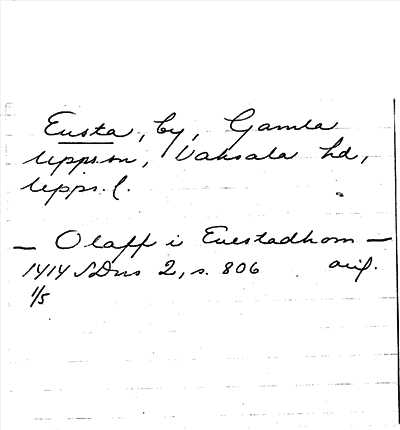 Eusta, by, Gamla
Uppson, Vaksala hd,
Upps. l.
— Olaff i Euestadhom —
1414 SDns 2, s. 806 orig.
1/5